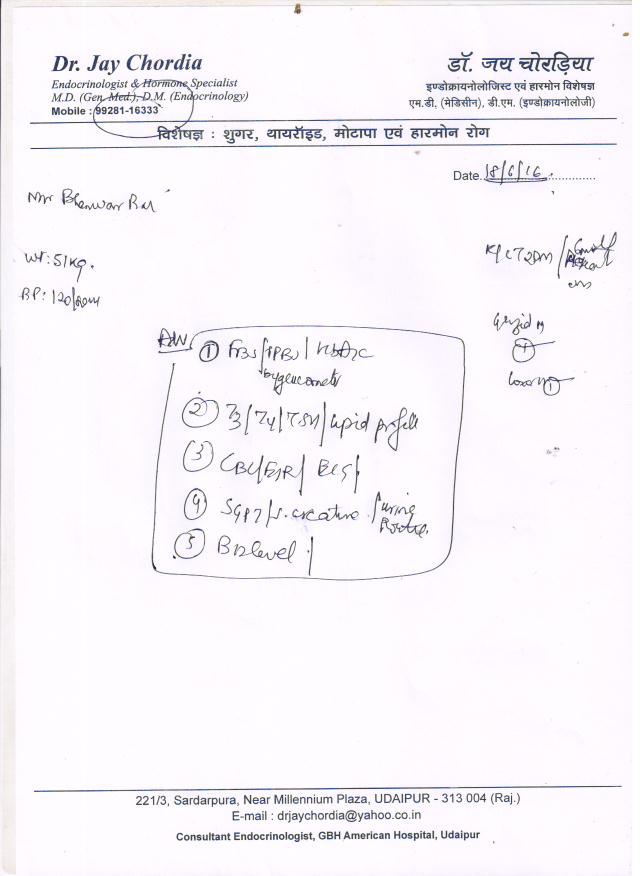 Dr. Jay Chordia
Endocrinologist & Hormone Specialist
M.D. (Gen. Med.), D.M. (Endocrinology)
Mobile : 99281-16333
डॉ. जय चोरड़िया
इण्डोक्रायनोलोजिस्ट एवं हारमोन विशेषज्ञ
एम.डी. (मेडिसीन), डी.एम. (इण्डोक्रायनोलोजी)
विशेषज्ञ : शुगर, थायरॉइड, मोटापा एवं हारमोन रोग
Date. 18/6/16
Mr Bhanwar
Wt: 51kg.
BP: 120/80
K/c T2DM /
Adv
① FBS/PPBS/HbA1c
by glucometer
② T3/T4/TSH/Lipid profile
③ CBC/ESR/ ECG/
④ SGPT/S. creatine / urine Routine
⑤ B12 level /
221/3, Sardarpura, Near Millennium Plaza, UDAIPUR - 313 004 (Raj.)
E-mail : drjaychordia@yahoo.co.in
Consultant Endocrinologist, GBH American Hospital, Udaipur